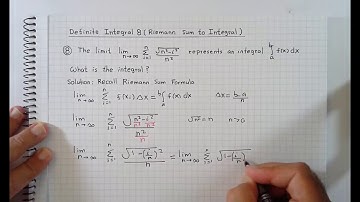 Definite Integral 8 (Riemann Sum to Integral)
⑧ The limit lim n→∞ n Σ i=1 √n²-i² / n² represents an integral b ∫ a f(x) dx
What is the integral?
Solution: Recall Riemann Sum Formula
lim n→∞ n Σ i=1 f(xᵢ) Δx = b ∫ a f(x) dx Δx = b-a / n
lim n→∞ n Σ i=1 √n²-i² / n / n² / n √n² = n n>0
lim n→∞ n Σ i=1 √1-(i/n)² / n = lim n→∞ n Σ i=1 √1-(i/n)